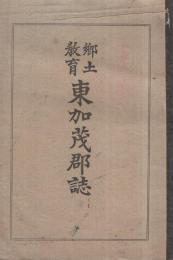 郷土
教育
東加茂郡誌